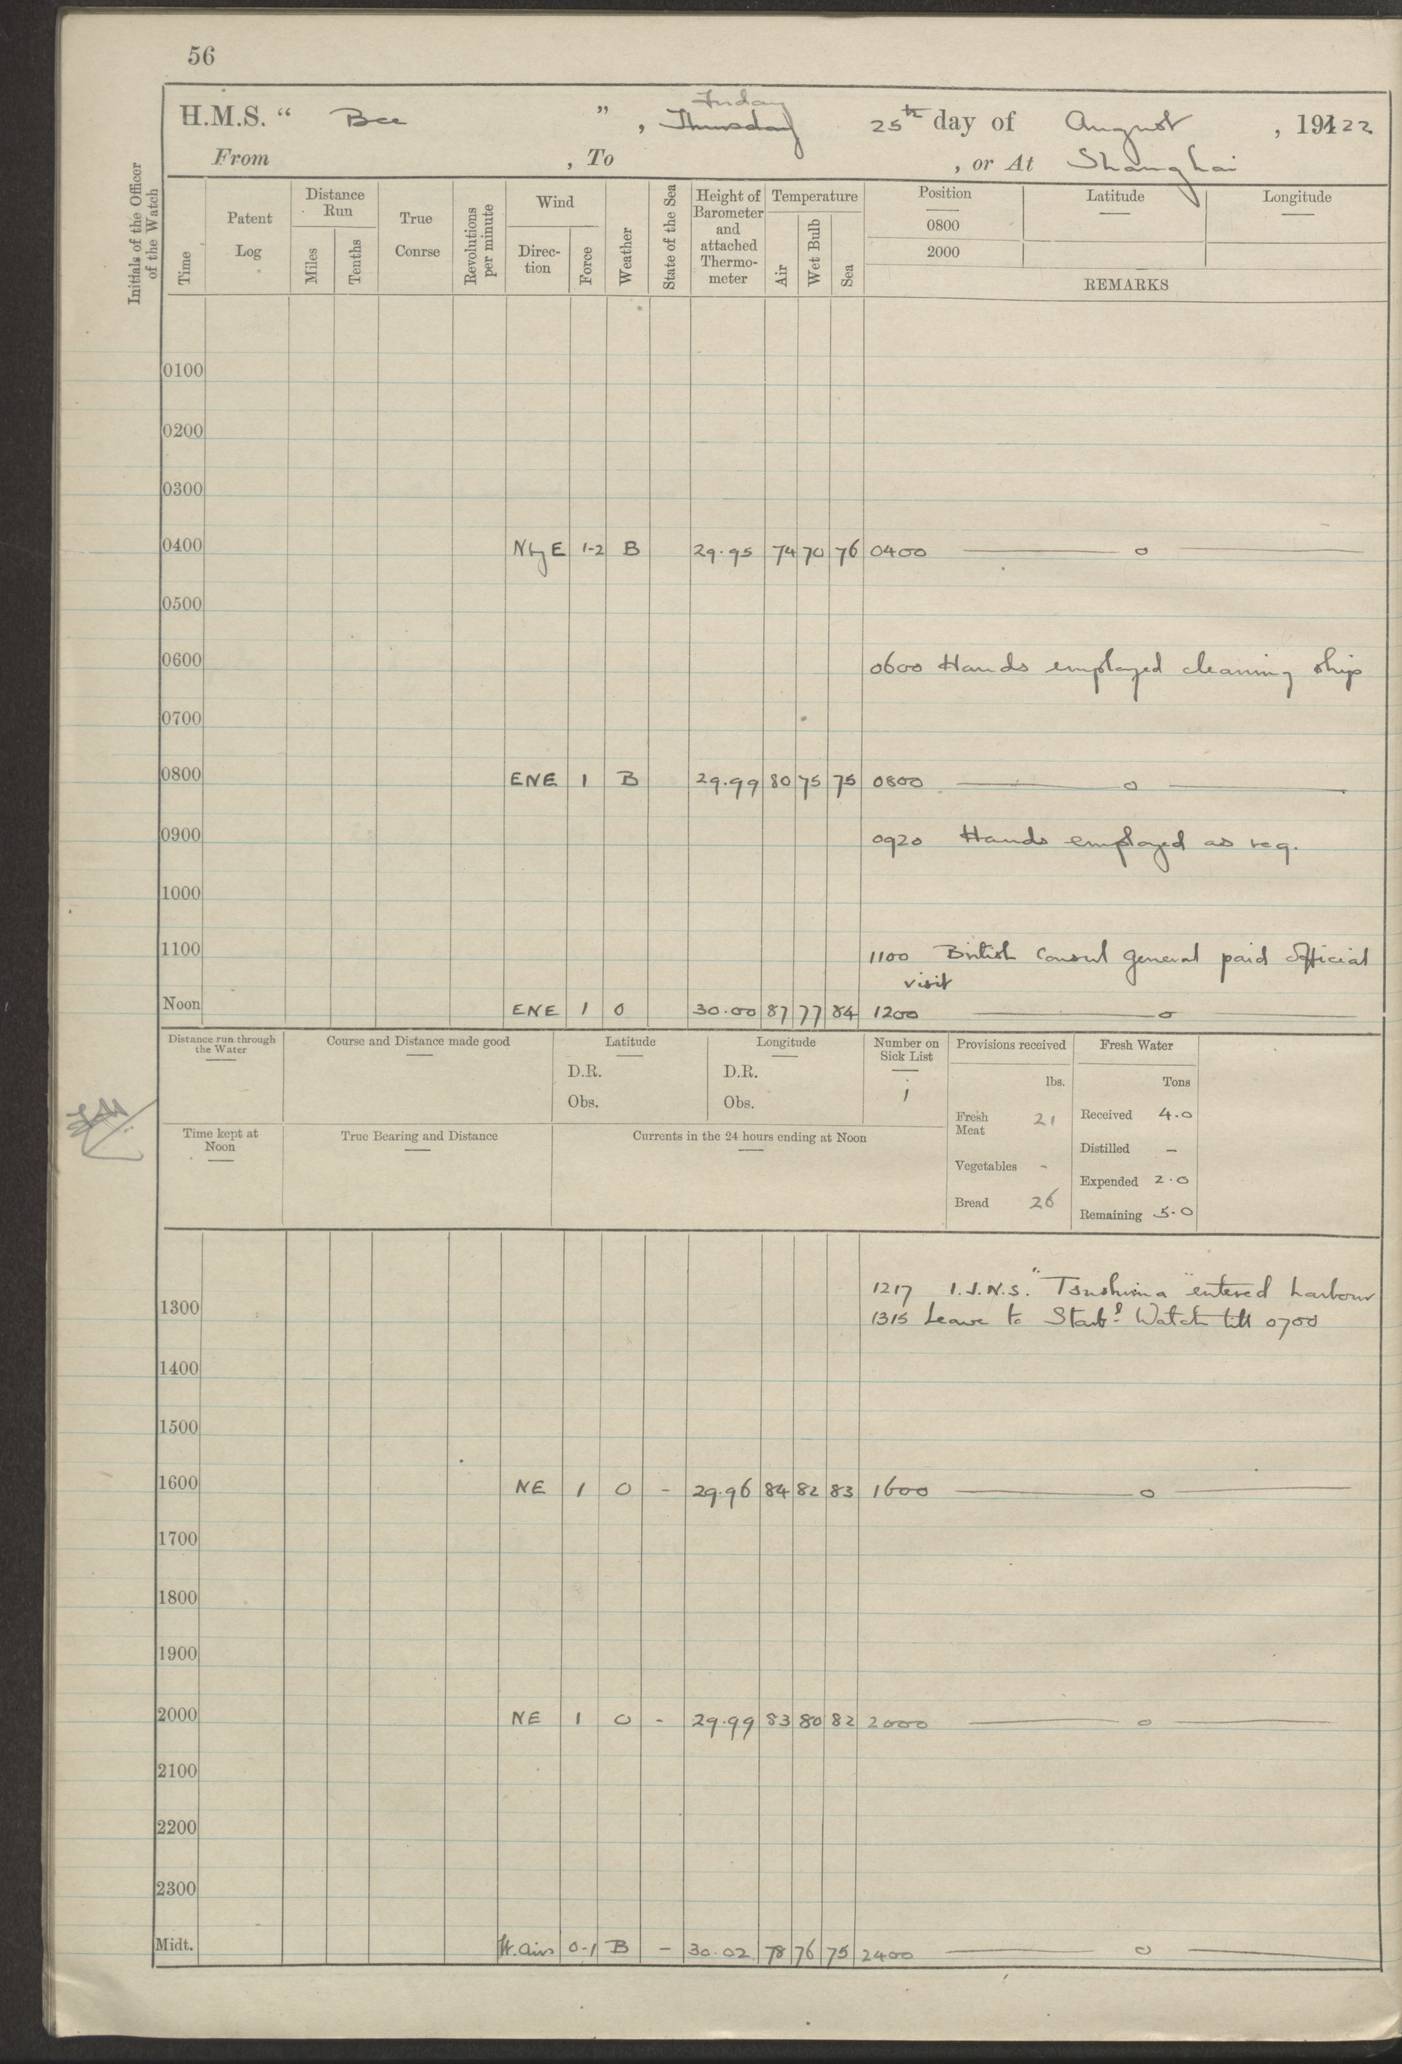 56
Friday
H.M.S. “ Bee ” , Thursday 25th day of August , 191 22
From , To , or At Shanghai
Initials of the Officer of the Watch
Time
Patent Log
Distance Run
Miles
Tenths
True Course
Revolutions per minute
Wind
Direc-tion
Force
Weather
State of the Sea
Height of Barometer and attached Thermo-meter
Temperature
Air
Wet Bulb
Sea
Position
Latitude
Longitude
0800
2000
REMARKS
0100
0200
0300
0400 NbyE 1-2 B 29.95 74 70 76 0400 o
0500
0600 0600 Hands employed cleaning ship
0700
0800 ENE 1 B 29.99 80 75 75 0800 o
0900 0920 Hands employed as req.
1000
1100 1100 British Consul general paid official
visit
Noon ENE 1 o 30.00 87 77 84 1200 o
Distance run through the Water
Course and Distance made good
Latitude
D.R.
Obs.
Longitude
D.R.
Obs.
Number on Sick List
1
Provisions received
lbs.
Fresh Meat 21
Vegetables -
Bread 26
Fresh Water
Tons
Received 4.0
Distilled -
Expended 2.0
Remaining 5.0
Time kept at Noon
True Bearing and Distance
Currents in the 24 hours ending at Noon
1217 I.J.N.S. "Tsushima" entered harbour
1300 1315 Leave to Starbd Watch till 0700
1400
1500
1600 NE 1 O - 29.96 84 82 83 1600 o
1700
1800
1900
2000 NE 1 O - 29.99 83 80 82 2000 o
2100
2200
2300
Midt. lt. airs 0-1 B - 30.02 78 76 75 2400 o